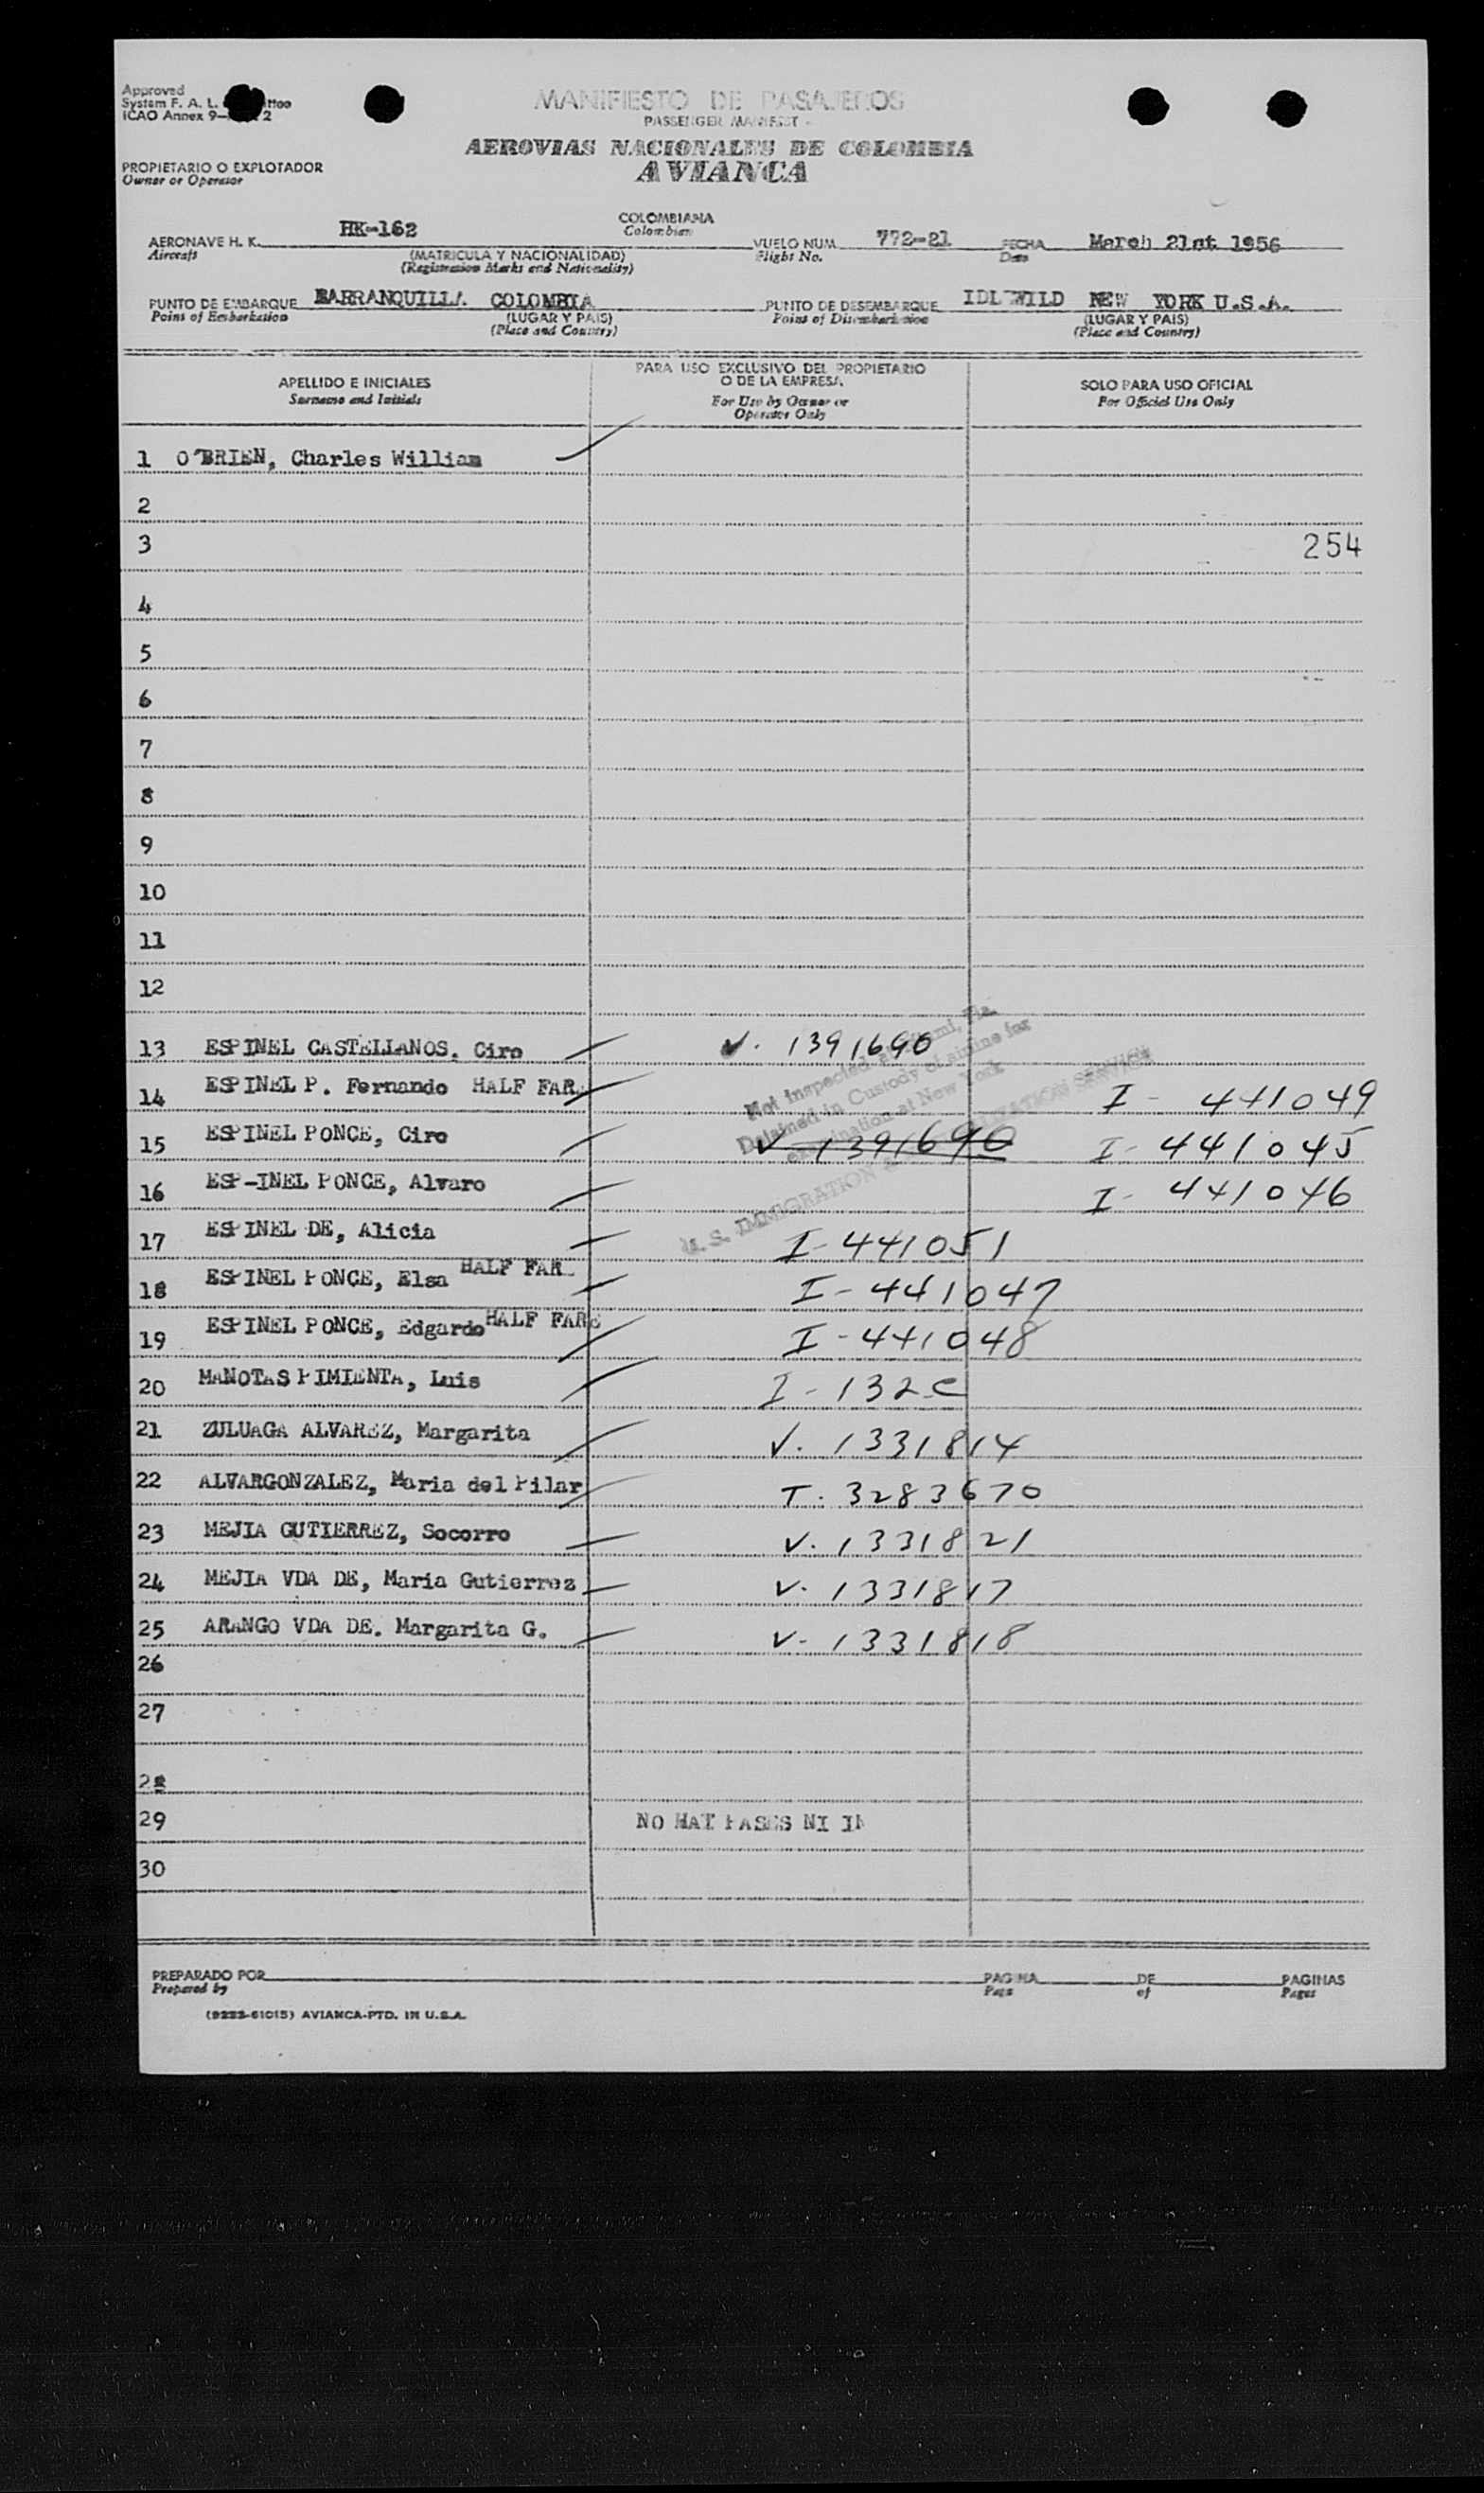 Approved
System F. A. L.
ICAO Annex 9— 2
MANIFIESTO DE PASAJEROS
PASSENGER MANIFEST
AEROVIAS NACIONALES DE COLOMBIA
AVIANCA
PROPIETARIO O EXPLOTADOR
Owner or Operator
AERONAVE H. K. HK-162 COLOMBIANA VUELO NUM. 772-21 FECHA March 21st 1956
Aircraft Colombian Flight No. Date
(MATRICULA Y NACIONALIDAD)
(Registration Marks and Nationality)
PUNTO DE EMBARQUE BARRANQUILLA COLOMBIA PUNTO DE DESEMBARQUE IDLEWILD NEW YORK U.S.A.
Point of Embarkation (LUGAR Y PAIS) Point of Disembarkation (LUGAR Y PAIS)
(Place and Country) (Place and Country)
APELLIDO E INICIALES
Surname and Initials
PARA USO EXCLUSIVO DEL PROPIETARIO
O DE LA EMPRESA
For Use by Owner or
Operator Only
SOLO PARA USO OFICIAL
For Official Use Only
1 O'BRIEN, Charles William
2
3 254
4
5
6
7
8
9
10
11
12
13 ESPINEL CASTELLANOS. Ciro V. 1391690
14 ESPINEL P. Fernando HALF FARE I - 441049
15 ESPINEL PONCE, Ciro V 1391690 I - 441045
16 ESP-INEL PONCE, Alvaro I - 441046
Not Inspected at Miami, Fla.
Detained in Custody of airline for
examination at New York
U. S. IMMIGRATION & NATURALIZATION SERVICE
17 ESPINEL DE, Alicia I-441051
18 ESPINEL PONCE, Elsa HALF FARE I-441047
19 ESPINEL PONCE, Edgardo HALF FARE I-441048
20 MANOTAS PIMIENTA, Luis I-132C
21 ZULUAGA ALVAREZ, Margarita V. 1331814
22 ALVARGONZALEZ, Maria del Pilar T. 3283670
23 MEJIA GUTIERREZ, Socorro V. 1331821
24 MEJIA VDA DE, Maria Gutierrez V. 1331817
25 ARANGO VDA DE. Margarita G. V- 1331818
26
27
28
29 NO HAY PASES NI IN
30
PREPARADO POR PAGINA DE PAGINAS
Prepared by Page of Pages
(9223-61015) AVIANCA-PTD. IN U.S.A.